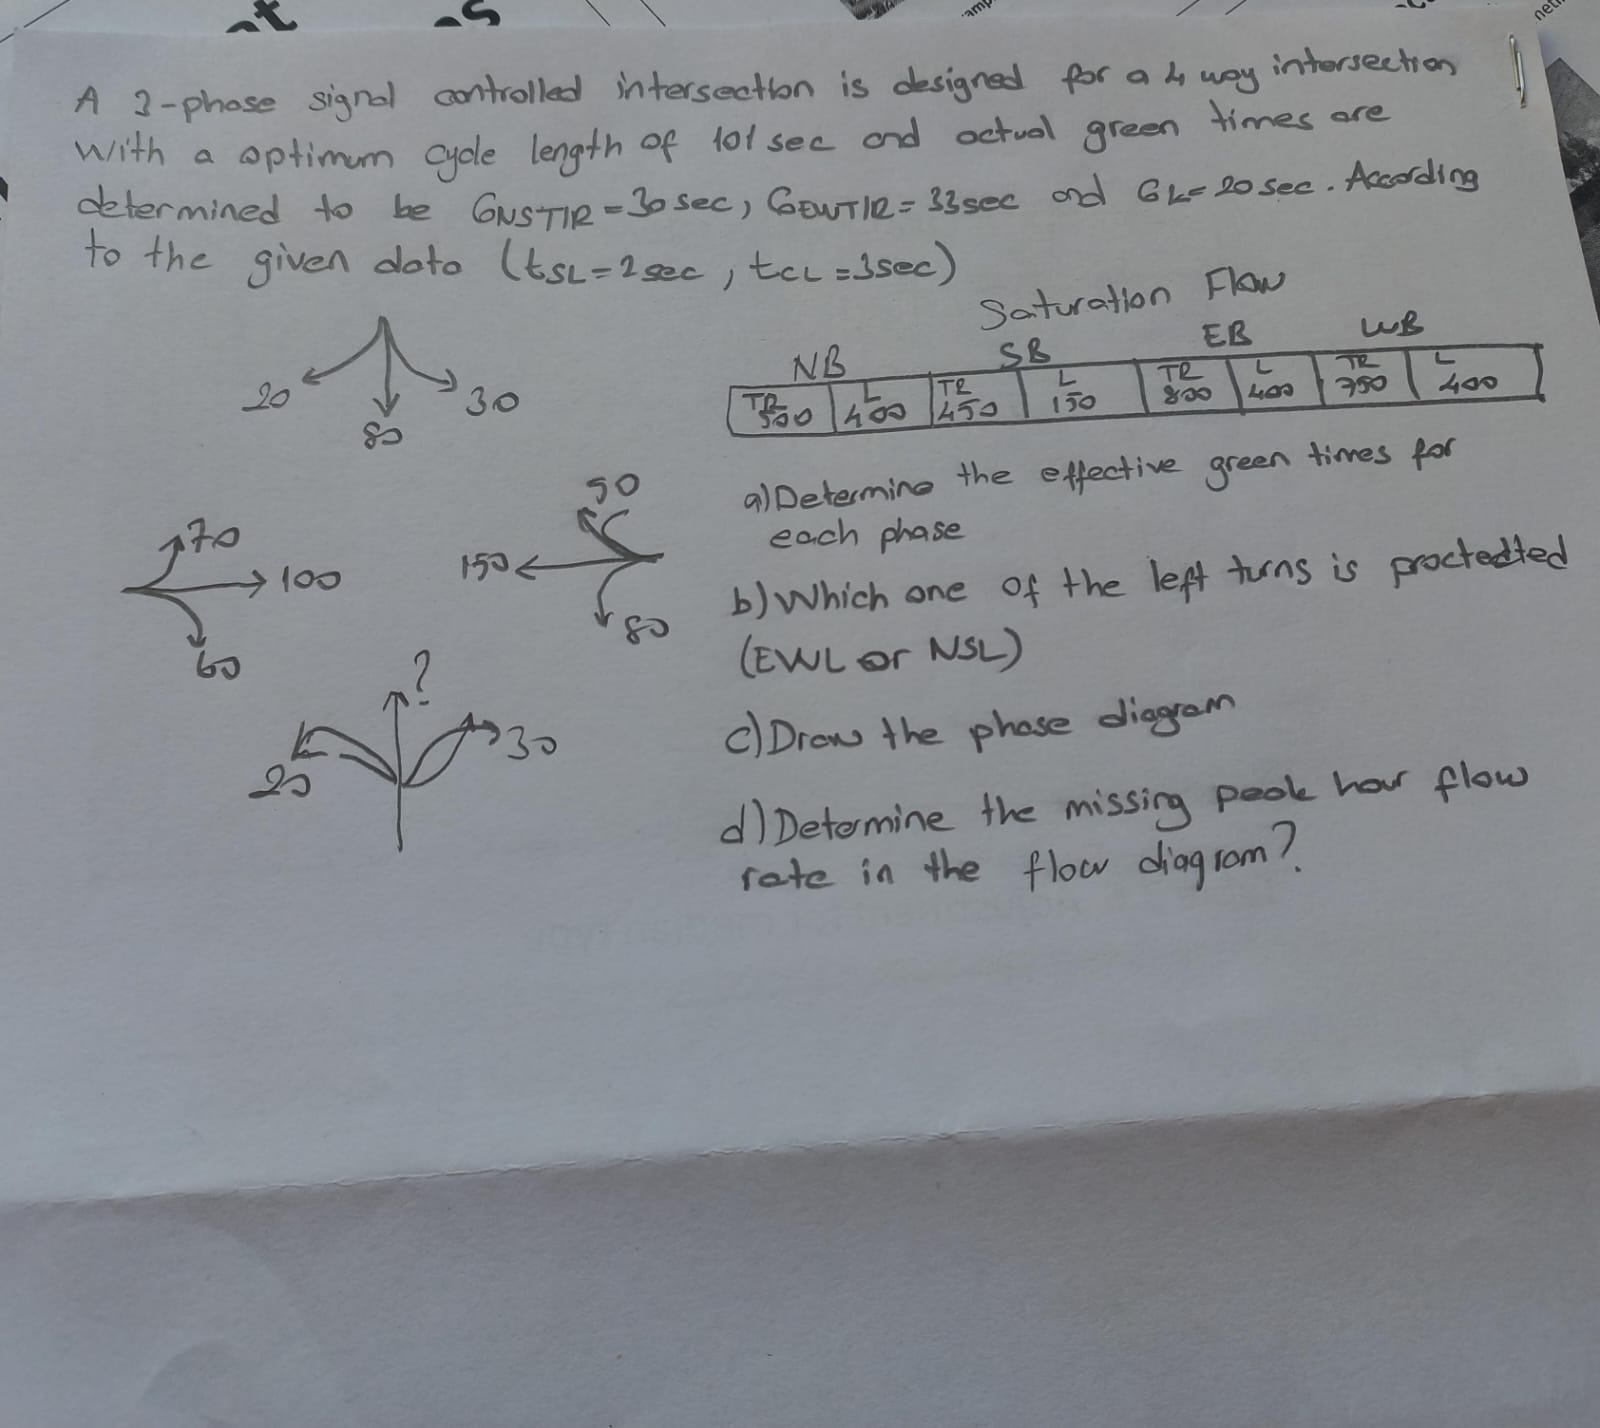 A 3-phase signal controlled intersection is designed for a 4 way intersection
with a optimum cycle length of 101 sec and actual green times are
determined to be GNSTIR = 30 sec, GEWTIR = 33sec and GL = 20 sec. According
to the given data (tSL = 2 sec, tCL = 3sec)
20
80
30
Saturation Flow
NB SB EB WB
TR L TR L TR L TR L
400 450 150 800 400 750 400
70
100
60
50
150
80
?
20
30
a) Determine the effective green times for
each phase
b) Which one of the left turns is proctedted
(EWL or NSL)
c) Draw the phase diagram
d) Determine the missing peak hour flow
rate in the flow diagram?